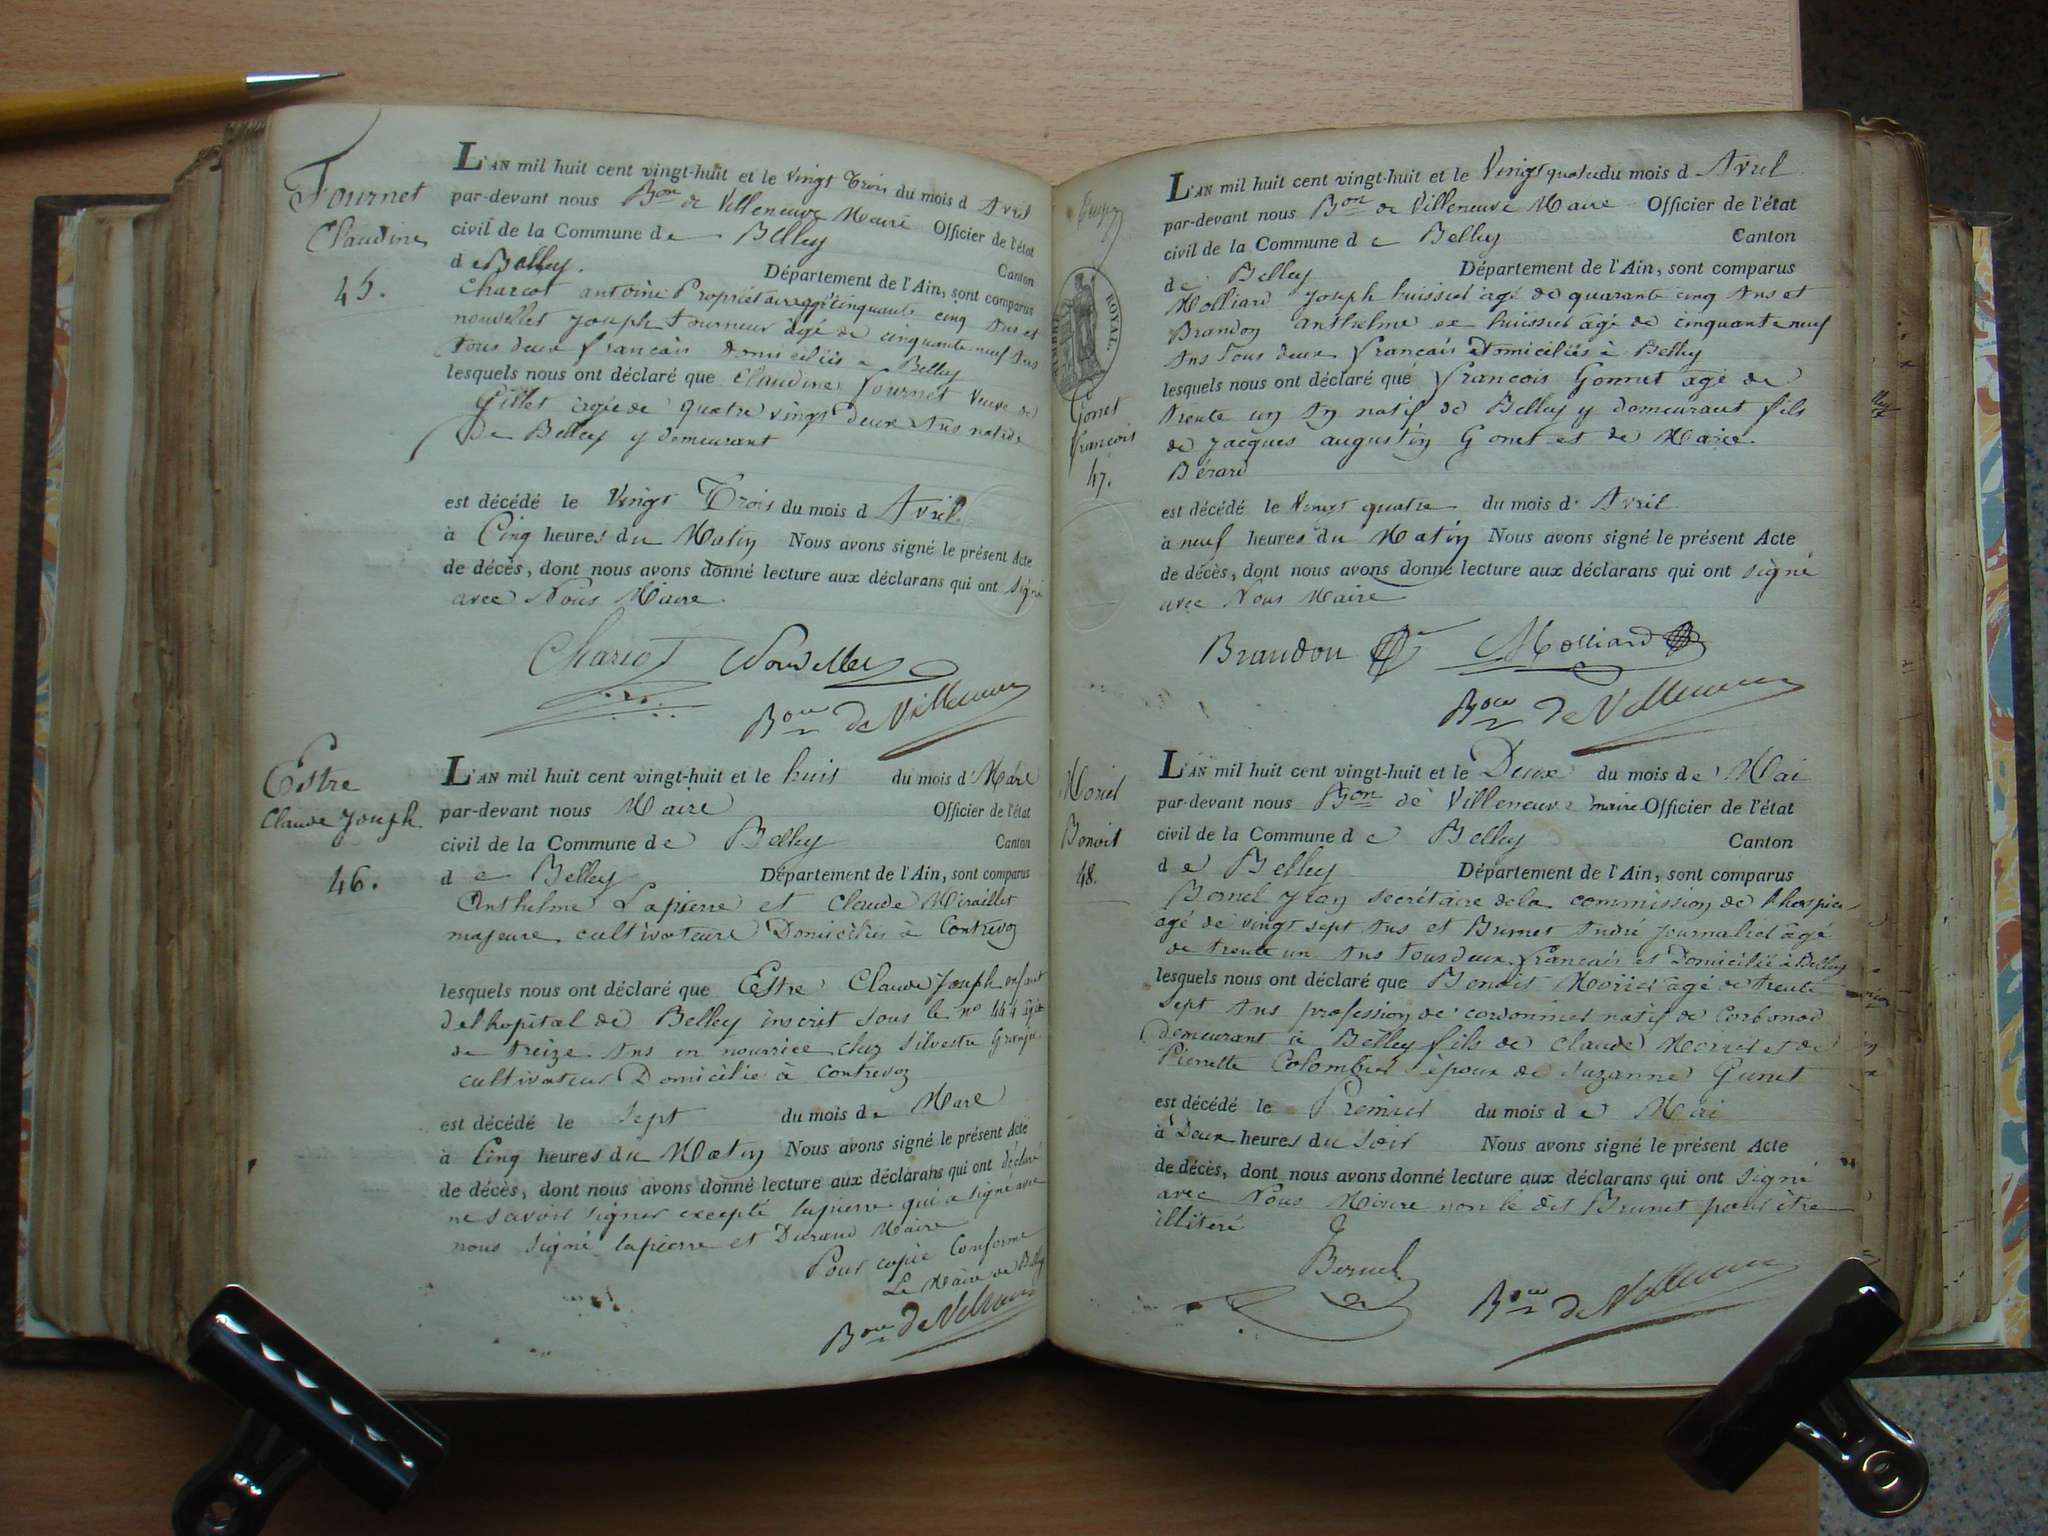 Fournet
Claudine
45.
L'AN mil huit cent vingt-huit et le vingt Trois du mois d Avril
par-devant nous Bon de Villeneuve Maire Officier de l'état
civil de la Commune de Belley Canton
de Belley. Département de l'Ain, sont comparus
Charcot antoine Propriétaire agé cinquante cinq Ans et
nouvellet joseph tourneur agé de cinquante neuf Ans
tous deux français domiciliés a Belley
lesquels nous ont déclaré que Claudine fournet veuve de
Gillet agée de quatre vingt deux Ans native
de Belley y demeurant
est décédé le Vingt Trois du mois d Avril.
à Cinq heures du Matin Nous avons signé le présent Acte
de décès, dont nous avons donné lecture aux déclarans qui ont signé
avec Nous Maire.
Charcot Nouvellet
Bon de Villeneuve
Estre
Claude Joseph
46.
L'AN mil huit cent vingt-huit et le huit du mois d Mars
par-devant nous Maire Officier de l'état
civil de la Commune de Belley Canton
de Belley Département de l'Ain, sont comparus
Anthelme Lapierre et Claude Miraillet
majeure cultivateure Domiciliés à Contrevoz
lesquels nous ont déclaré que Estre Claude Joseph enfant
del hopital de Belley inscrit sous le no 444 agé
de treize Ans en nourrice chez Silvestre
cultivateur Domicilié à Contrevoz
est décédé le sept du mois de Mars
à Cinq heures du Matin Nous avons signé le présent Acte
de décès, dont nous avons donné lecture aux déclarans qui ont déclaré
ne savoir signer excepté lapierre qui a signé avec
nous signé lapierre et Durand Maire
Pour copie Conforme
Le Maire de Belley
Bon de Villeneuve
ROYAL.
Gonet
françois
47.
L'AN mil huit cent vingt-huit et le Vingt quatre du mois d Avril
par-devant nous Bon de Villeneuve Maire Officier de l'état
civil de la Commune de Belley Canton
de Belley Département de l'Ain, sont comparus
Molliard Joseph huissier agé de quarante cinq Ans et
Brandon anthelme ex huissier agé de cinquante neuf
Ans Tous deux français Domiciliés à Belley
lesquels nous ont déclaré que françois Gonnet agé de
trente un An natif de Belley y demeurant fils
de jacques augustin Gonet et de Marie.
Bérard
est décédé le Vingt quatre du mois d' Avril
à neuf heures du Matin Nous avons signé le présent Acte
de décès, dont nous avons donné lecture aux déclarans qui ont signé
avec Nous Maire
Brandon Molliard
Bon de Villeneuve
Moriel
Benoit
48.
L'AN mil huit cent vingt-huit et le Deux du mois de Mai
par-devant nous Bon de Villeneuve maire Officier de l'état
civil de la Commune de Belley Canton
de Belley Département de l'Ain, sont comparus
Bornel Jean secrétaire dela commission de l'hospice
agé de vingt sept Ans et Brunet André journalier agé
de trente un Ans Tous deux français et Domicilié à Belley
lesquels nous ont déclaré que Benoit Moriel agé de trente
sept Ans profession de cordonnier natif de Corbonod
demeurant à Belley fils de Claude Moriel et de
Pierrette Colombier époux de Suzanne Gunet
est décédé le Premier du mois de Mai
à Deux heures du soir Nous avons signé le présent Acte
de décès, dont nous avons donné lecture aux déclarans qui ont signé
avec Nous Maire non le dit Brunet pour être
illiteré
Bernel
Bon de Villeneuve